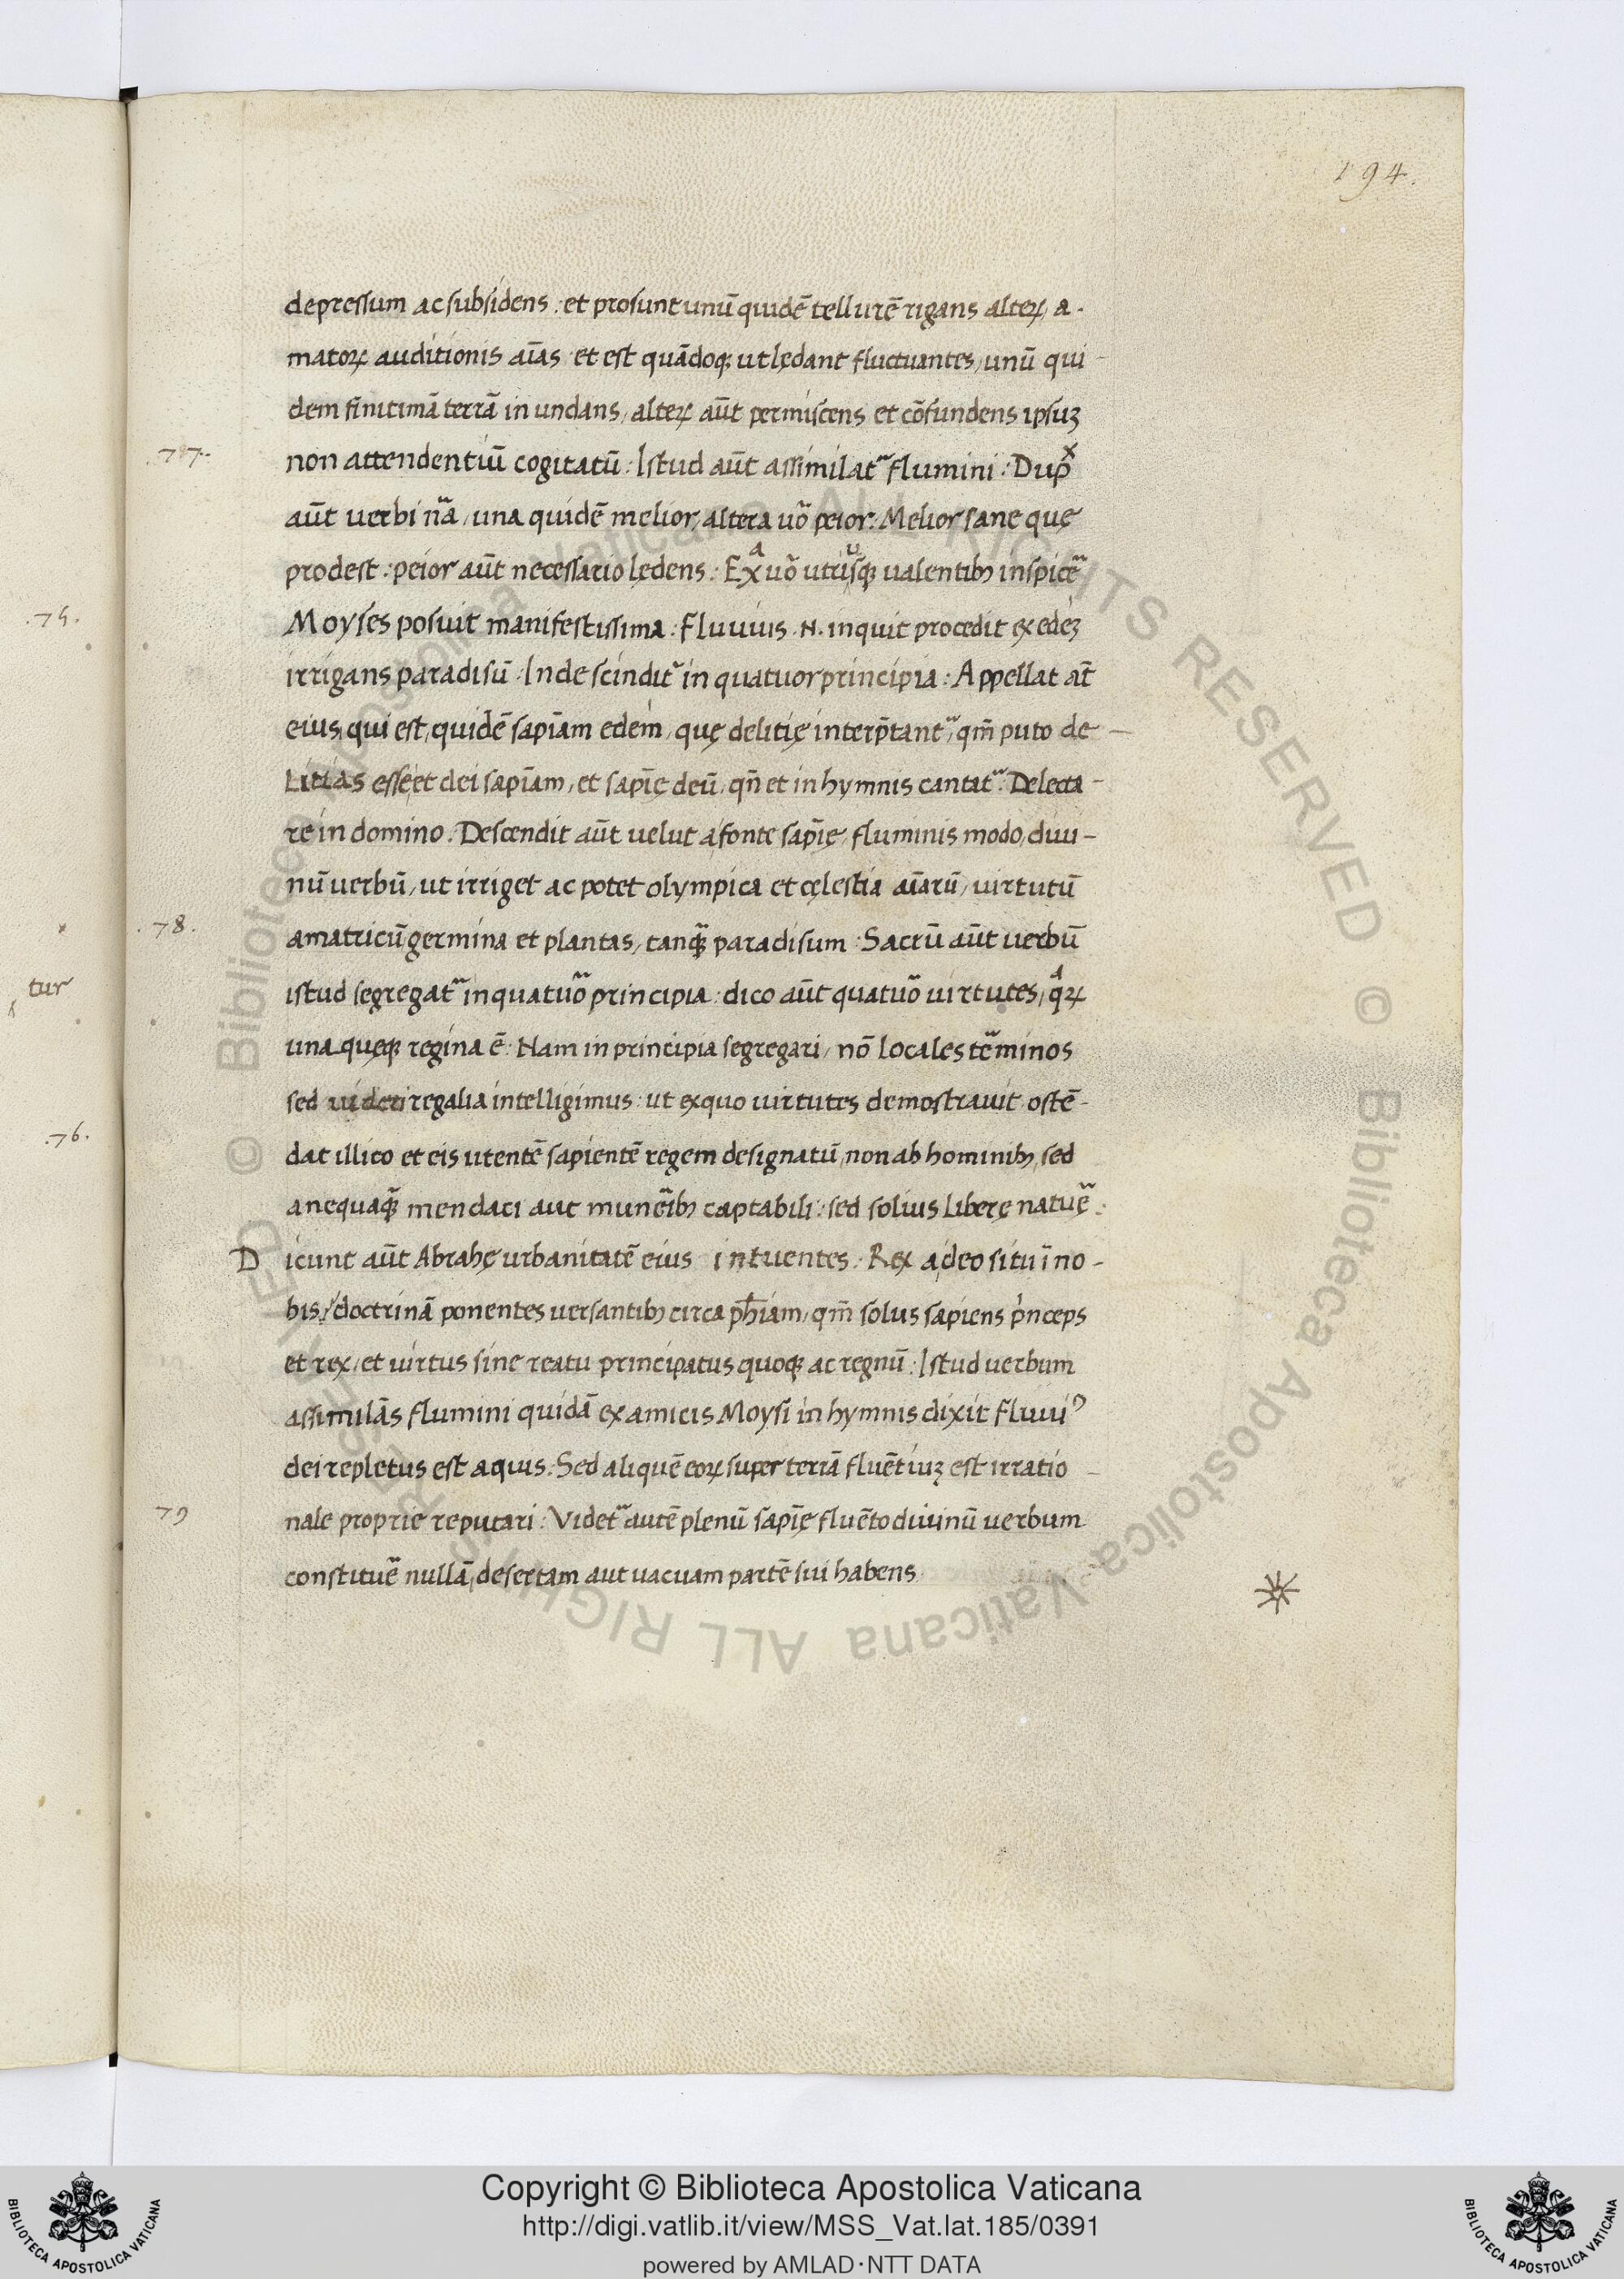 194.
depressum ac subsidens : et prosunt unū quidē tellurē rigans alteꝝ, a-
matoꝝ auditionis aīas · et est quādoqꝫ ut lędant fluctuantes, unū qui-
dem finitimā terrā inundans, alteꝝ aūt permiscens et cōfundens ipsuꝫ
.77.
non attendentiū cogitatū : Istud aūt assimilat᷑ flumini : Dup̄x
aūt uerbi nā᷑, una quidē melior, altera uō peior : Melior sane quę
prodest : peior aūt necessario lędens : Exᵃ uō utriᵘsqꝫ ualentibꝫ inspice᷑
.75.
Moyses posuit manifestissima : Fluuius .N. inquit procedit ex edeꝫ
irrigans paradisū : Inde scindit᷑ in quatuor principia : Appellat at̄
eius, qui est, quidē sapīam edem, quę delitię interp̄tant᷑, qm̄ puto de-
litias esse, et dei sapīam, et sapīę deū, qn̄ et in hymnis cantat᷑ : Delecta-
re in domino. Descendit aūt uelut a fonte sapīę, fluminis modo, diui-
nū uerbū, ut irriget ac potet olympica et cęlestia aīarū, uirtutū
.78.
amatricū germina et plantas, tanqꝫ̄ paradisum : Sacrū aūt uerbū
tur
istud segregat᷑ in quatuo᷑ principia : dico aūt quatuo᷑ uirtutes, qᵃꝝ
unaquęqꝫ regina ē : Nam in principia segregari, nō locales te᷑minos
sed uideri regalia intelligimus : ut ex quo uirtutes demostrauit ostē-
.76.
dat illico et eis utentē sapientē regem designatū, non ab hominibꝫ, sed
a nequaqꝫ̄ mendaci aut mune᷑ibꝫ captabili : sed solius liberę natu᷑ę :
Dicunt aūt Abrahę urbanitatē eius intuentes : Rex a deo si tu ī no-
bis, doctrinā ponentes uersantibꝫ circa ph̄iam, qm̄ solus sapiens p̍nceps
et rex, et uirtus sine reatu principatus quoqꝫ ac regnū : Istud uerbum
assimilās flumini quidā ex amicis Moysi in hymnis dixit Fluuiꝰ
dei repletus est aquis : Sed aliquē eoꝝ super terrā fluētiuꝫ est irratio-
79
nale proprie reputari : Videt᷑ autē plenū sapīę fluēto diuinū uerbum
constitue᷑ nullā, desertam aut uacuam partē sui habens
© Biblioteca Apostolica Vaticana ALL RIGHTS RESERVED © Biblioteca Apostolica Vaticana ALL RIGHTS RESERVED
Copyright © Biblioteca Apostolica Vaticana
http://digi.vatlib.it/view/MSS_Vat.lat.185/0391
powered by AMLAD·NTT DATA
BIBLIOTECA APOSTOLICA VATICANA
BIBLIOTECA APOSTOLICA VATICANA